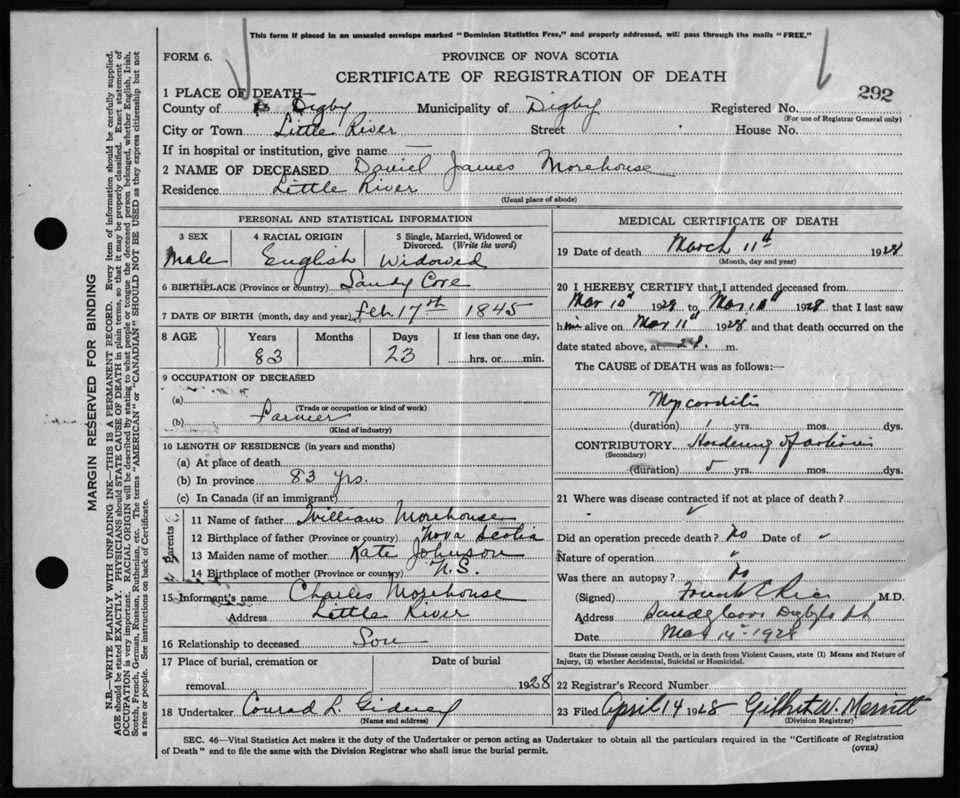 This form if placed in an unsealed envelope marked "Dominion Statistics Free," and properly addressed, will pass through the mails "FREE."
FORM 6.
PROVINCE OF NOVA SCOTIA
CERTIFICATE OF REGISTRATION OF DEATH
292
1 PLACE OF DEATH—
County of Digby Municipality of Digby Registered No.
(For use of Registrar General only)
City or Town Little River Street House No.
If in hospital or institution, give name —
2 NAME OF DECEASED Daniel James Morehouse
Residence Little River
(Usual place of abode)
PERSONAL AND STATISTICAL INFORMATION
3 SEX 4 RACIAL ORIGIN 5 Single, Married, Widowed or Divorced. (Write the word)
Male English Widowed
6 BIRTHPLACE (Province or country) Sandy Cove
7 DATE OF BIRTH (month, day and year) Feb 17th 1845
8 AGE Years Months Days If less than one day,
83 23 hrs. or min.
9 OCCUPATION OF DECEASED
(a)
(Trade or occupation or kind of work)
(b) Farmer
(Kind of industry)
10 LENGTH OF RESIDENCE (in years and months)
(a) At place of death
(b) In province 83 yrs.
(c) In Canada (if an immigrant)
Parents
11 Name of father William Morehouse
12 Birthplace of father (Province or country) Nova Scotia
13 Maiden name of mother Kate Johnson
14 Birthplace of mother (Province or country) N.S.
15 Informant's name Charles Morehouse
Address Little River
16 Relationship to deceased Son
17 Place of burial, cremation or removal Date of burial
1928
18 Undertaker Conrad L. Gidney
(Name and address)
MEDICAL CERTIFICATE OF DEATH
19 Date of death March 11th 1928
(Month, day and year)
20 I HEREBY CERTIFY that I attended deceased from
Mar 10th 1928 to Mar 1928 that I last saw
him alive on Mar 11th 1928 and that death occurred on
date stated above, at m.
The CAUSE of DEATH was as follows:—
Myocarditis
(duration) 1 yrs. mos. dys.
CONTRIBUTORY Hardening of arteries
(Secondary)
(duration) 5 yrs. mos. dys.
21 Where was disease contracted if not at place of death?
Did an operation precede death? No Date of "
Nature of operation "
Was there an autopsy? No
(Signed) Frank E Rice M.D.
Address Sandy Cove Digby Co
Date Mar 14 1928
State the Disease causing Death, or in death from Violent Causes, state (1) Means and Nature of Injury, (2) whether Accidental, Suicidal or Homicidal.
22 Registrar's Record Number
23 Filed April 14 1928 Gilbert W. Merritt
(Division Registrar)
SEC. 46—Vital Statistics Act makes it the duty of the Undertaker or person acting as Undertaker to obtain all the particulars required in the "Certificate of Registration
of Death" and to file the same with the Division Registrar who shall issue the burial permit.
(OVER)
MARGIN RESERVED FOR BINDING
N.B.—WRITE PLAINLY WITH UNFADING INK—THIS IS A PERMANENT RECORD. Every item of information should be carefully supplied.
AGE should be stated EXACTLY. PHYSICIANS should STATE CAUSE OF DEATH in plain terms, so that it may be properly classified. Exact statement of
OCCUPATION is very important. RACIAL ORIGIN will be described by stating to what people or tongue the deceased person belonged, whether English, Irish,
Scotch, French, German, Russian, Ruthenian, etc. The terms "AMERICAN" or "CANADIAN" SHOULD NOT BE USED as they express citizenship but not
a race or people. See instructions on back of Certificate.